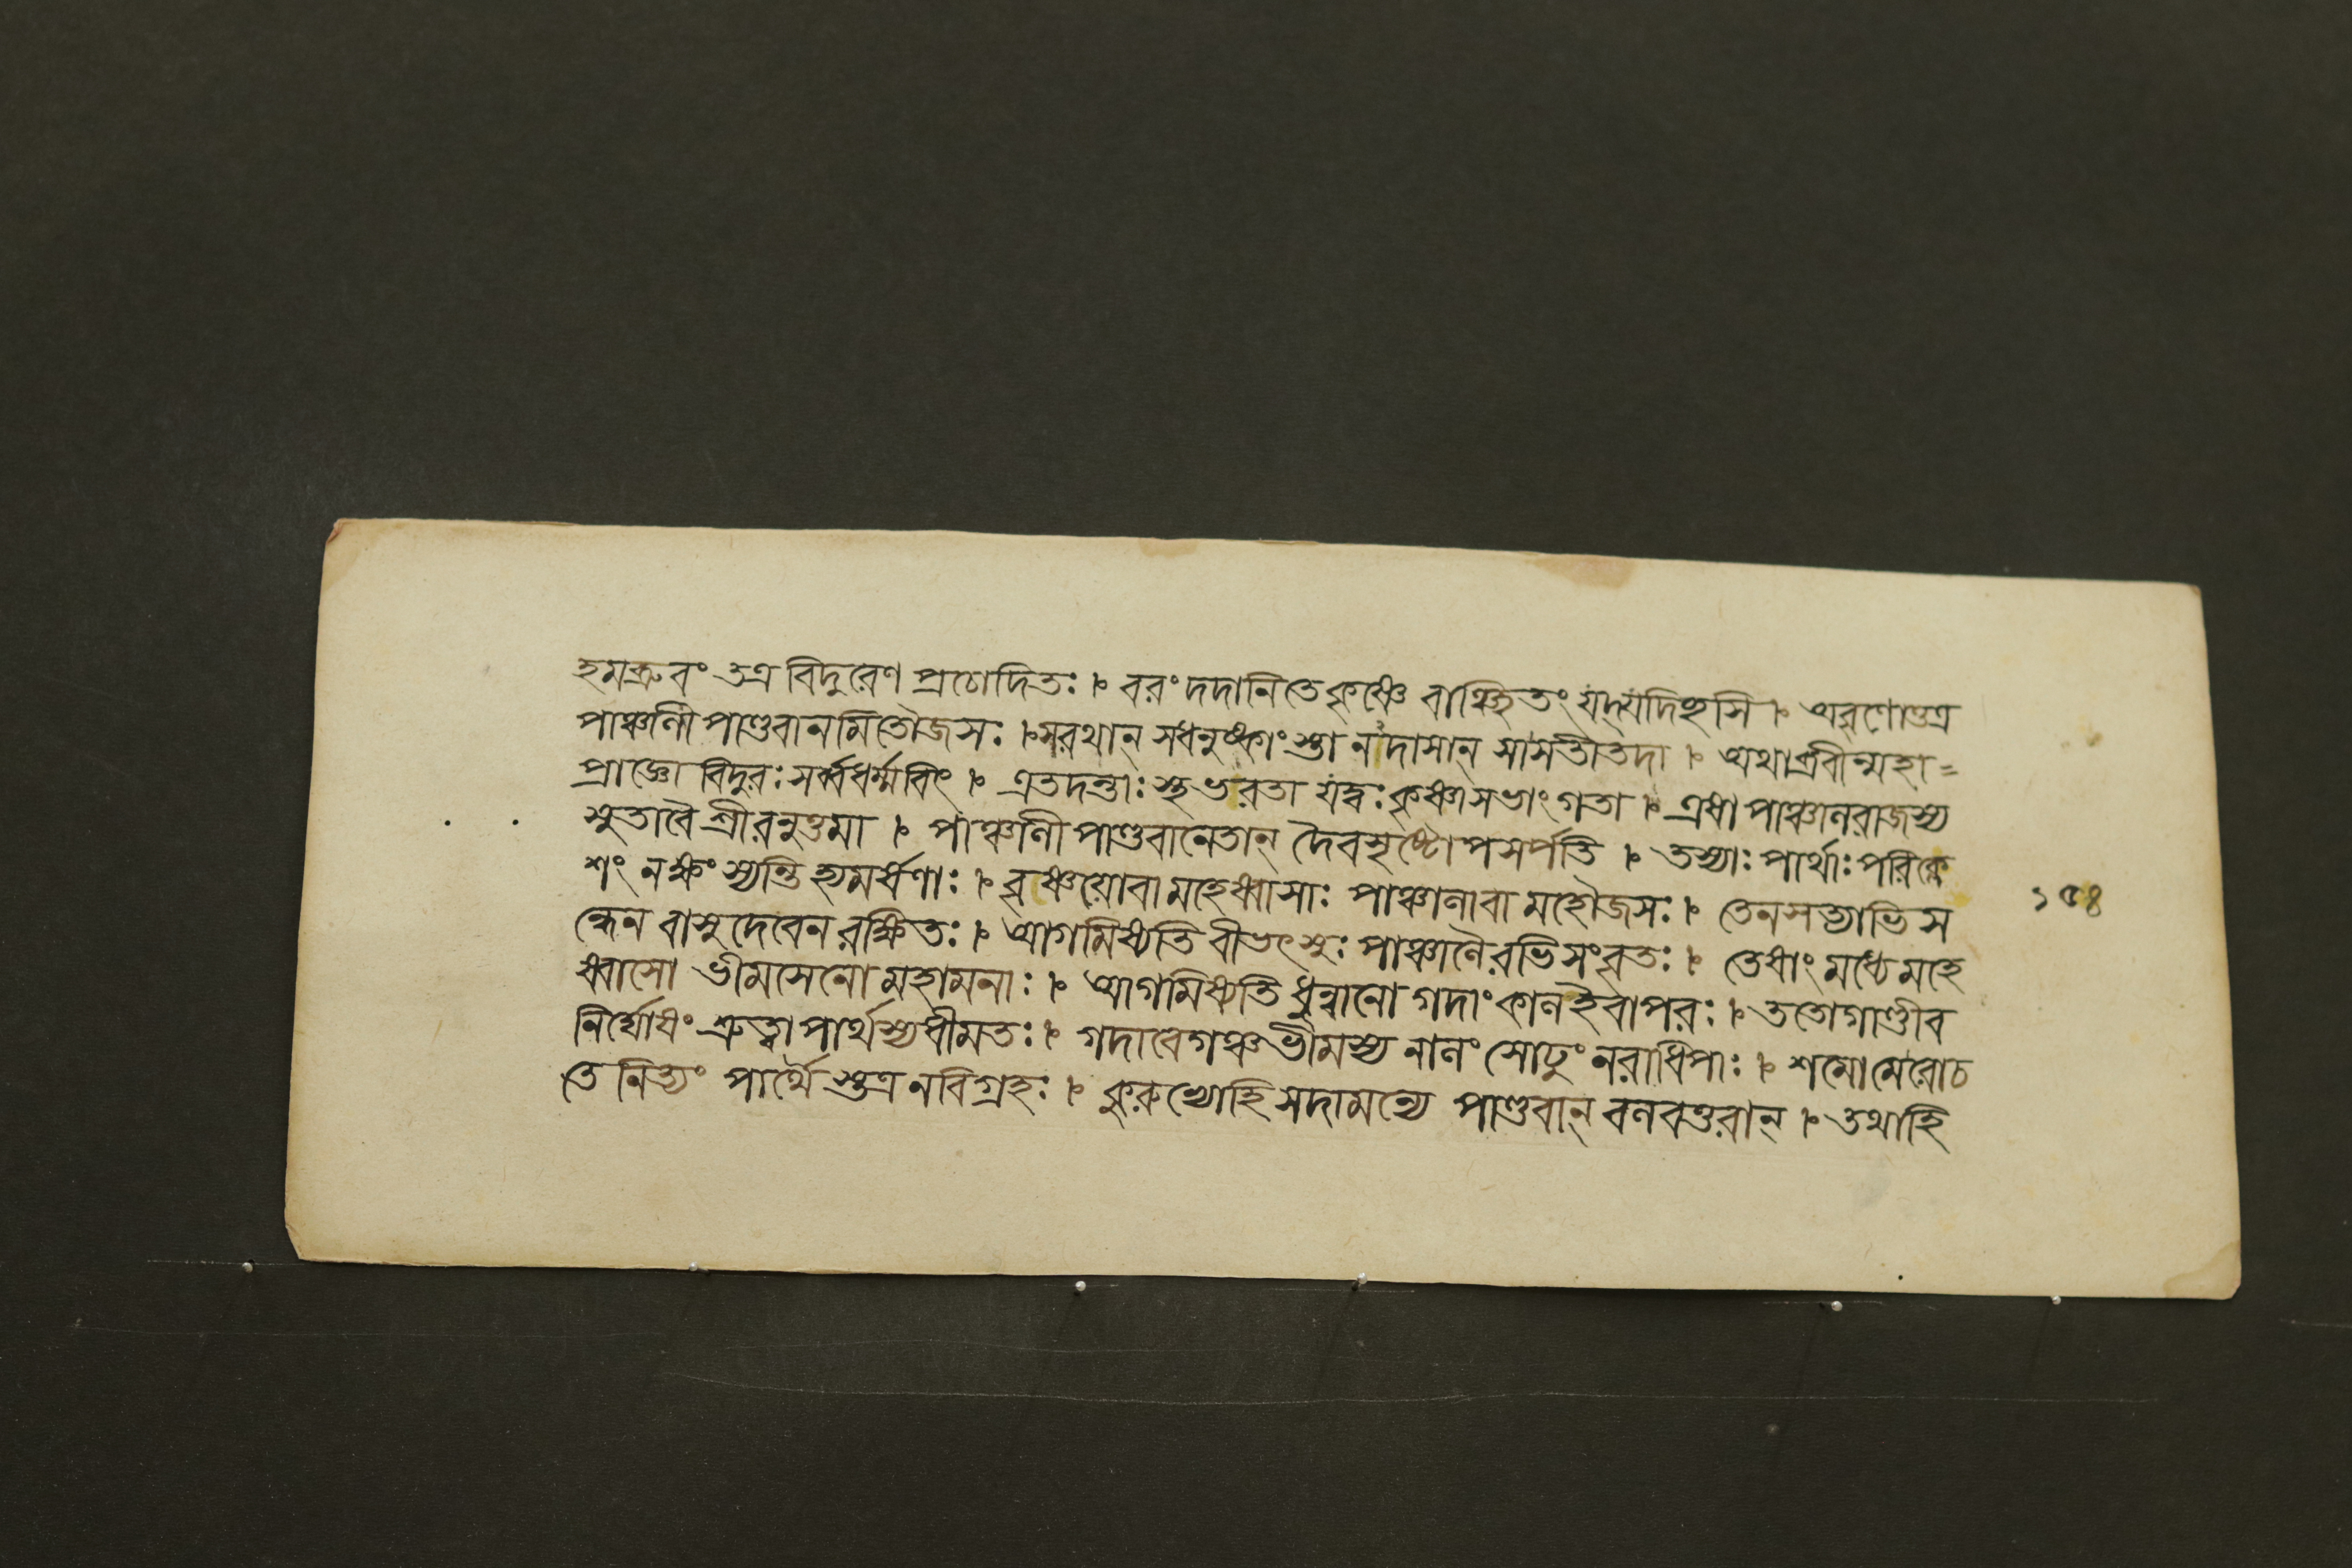 হমব্রুবং তত্র বিদুরেণ প্রচোদিতঃ । বরং দদানি তে কৃষ্ণে বাঞ্ছিতং যদ্যদিছসি । অবৃণোত্তত্র
পাঞ্চালী পাণ্ডবানমিতৌজসঃ । সরথান্ সধনুষ্কাংস্তা নদাসান্ সাসতীতদা । অথাব্রবীন্মহা=
প্রাজ্ঞো বিদুরঃ সর্ব্বধর্ম্মবিৎ । এতদন্তাঃ স্থ ভরতা যদ্বঃ কৃষ্ণাসভাংগতা । এষা পাঞ্চালরাজস্য
সুতাবৈ শ্রীরনুত্তমা । পাঞ্চালী পাণ্ডবানেতান্ দৈবসৃষ্টোপসর্পতি । তস্যাঃ পার্থাঃ পরিক্লে
শং নক্ষংস্যন্তি হ্যমর্ষণাঃ । বৃষ্ণয়োবা মহেষ্বাসাঃ পাঞ্চালাবা মহৌজসঃ । তেনসত্যাভিস
ন্ধেন বাসুদেবেন রক্ষিতঃ । আগমিষ্যতি বীভৎসুঃ পাঞ্চালৈরভিসংবৃতঃ । তেষাং মধ্যে মহে
ষ্বাসো ভীমসেনো মহামনাঃ । আগমিষ্যতি ধুন্বানো গদাং কালইবাপরঃ । ততোগাণ্ডীব
নির্ঘোষং শ্রুত্বা পার্থস্যধীমতঃ । গদাবেগঞ্চ ভীমস্য নালং সোঢুং নরাধিপাঃ । শমোমেরোচ
তে নিত্যং পার্থৈস্তত্র নবিগ্রহঃ । কুরুভ্যোহি সদামন্যে পাণ্ডবান্ বলবত্তরান্ । তথাহি
১৫৪